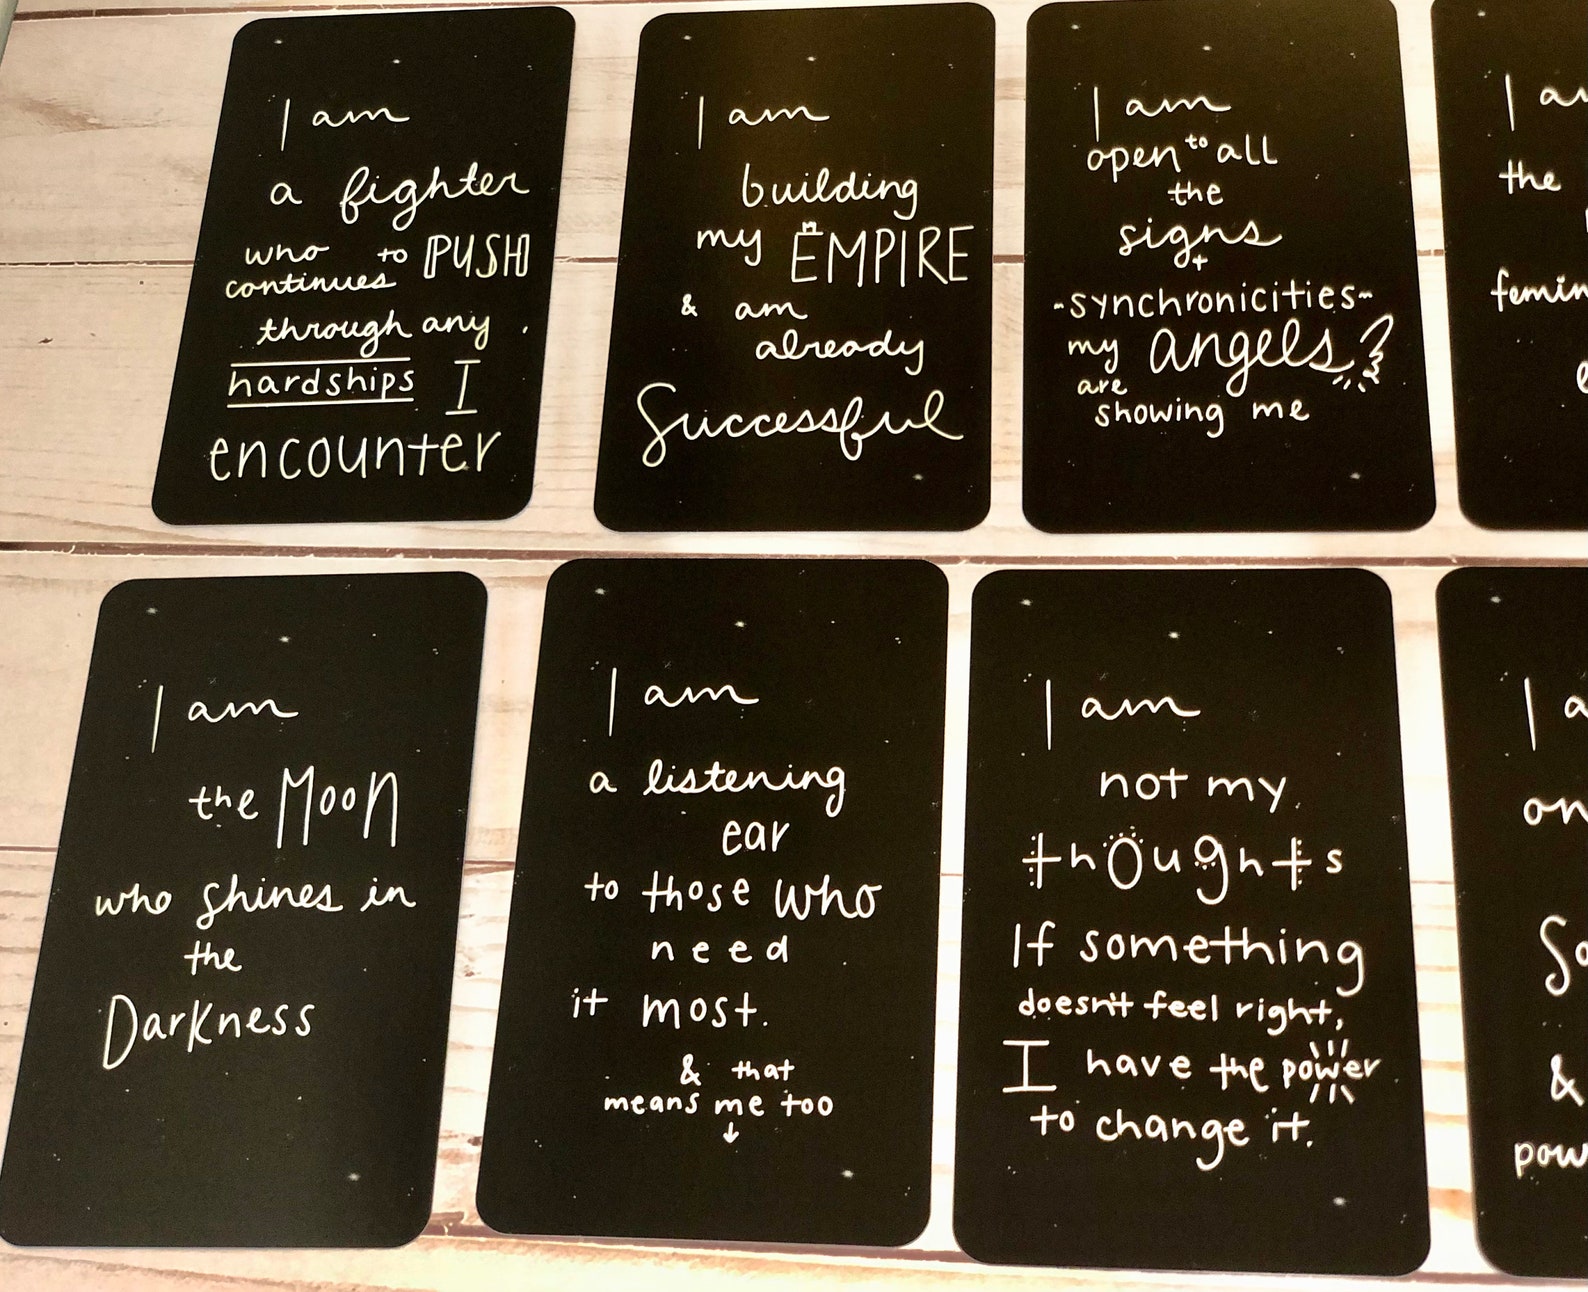 I am
a fighter
who to PUSH
continues
through any
hardships I
encounter
I am
building
my EMPIRE
& am
already
Successful
I am
open to all
the
signs
+
~synchronicities~
my angels
are
showing me
I
the
I am
the Moon
who shines in
the
Darkness
I am
a listening
ear
to those who
need
it most.
& that
means me too
↓
I am
not my
thoughts
If something
doesn't feel right,
I have the power
to change it.
I
&